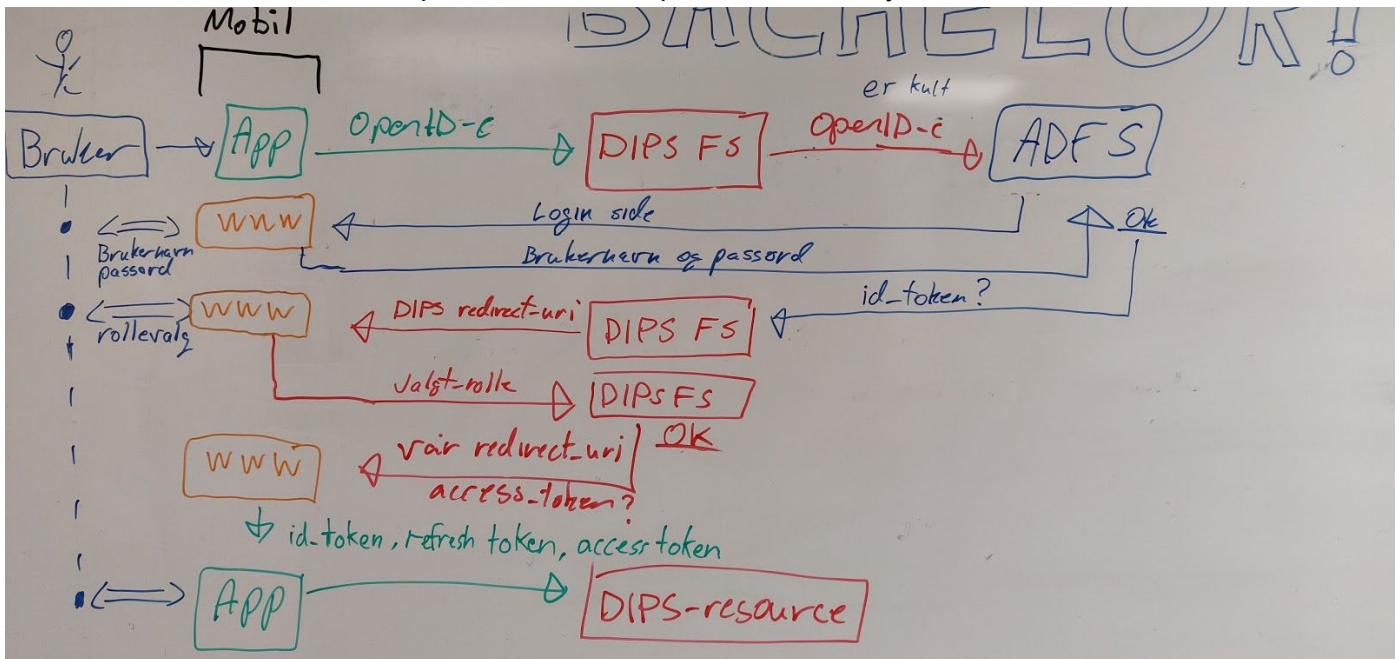 Mobil
BACHELOR!
er kult
Bruker
App
OpenID-c
DIPS FS
OpenID-c
ADFS
www
Login side
Ok
Brukernavn
passord
Brukernavn og passord
id_token?
www
rollevalg
DIPS redirect-uri
DIPS FS
Valgt-rolle
DIPS FS
OK
www
Vår redirect_uri
access_token?
id_token, refresh token, access token
App
DIPS-resource